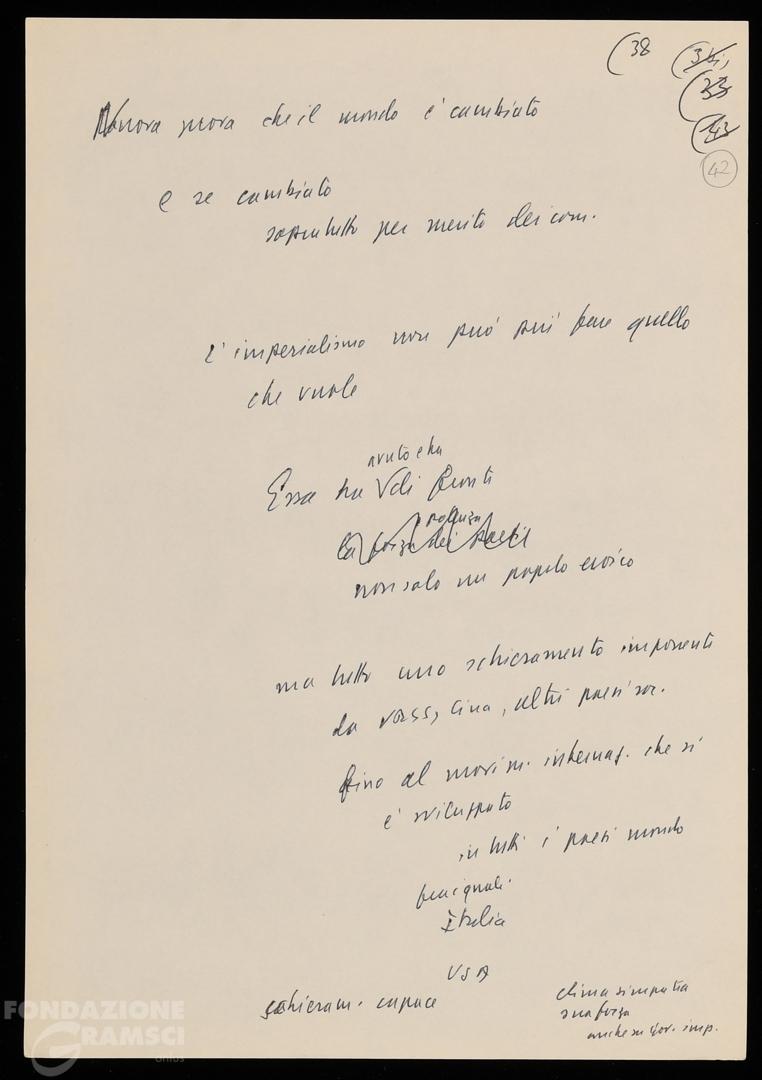 (38
(34,
(33
(43
42
Nuova prova che il mondo è cambiato
e se cambiato
soprattutto per merito dei com.
L'imperialismo non può più fare quello
che vuole
avuto e ha
Essa ha V di fronti
potenza
la forza dei paesi
non solo un popolo eroico
ma tutto uno schieramento imponente
da URSS, Cina, altri paesi soc.
fino al movim. internaz. che si
è sviluppato
in tutti i paesi mondo
fra i quali
Italia
USA
schieram. capace
clima simpatia
sua forza
anche su gov. imp.
FONDAZIONE
GRAMSCI
onlus